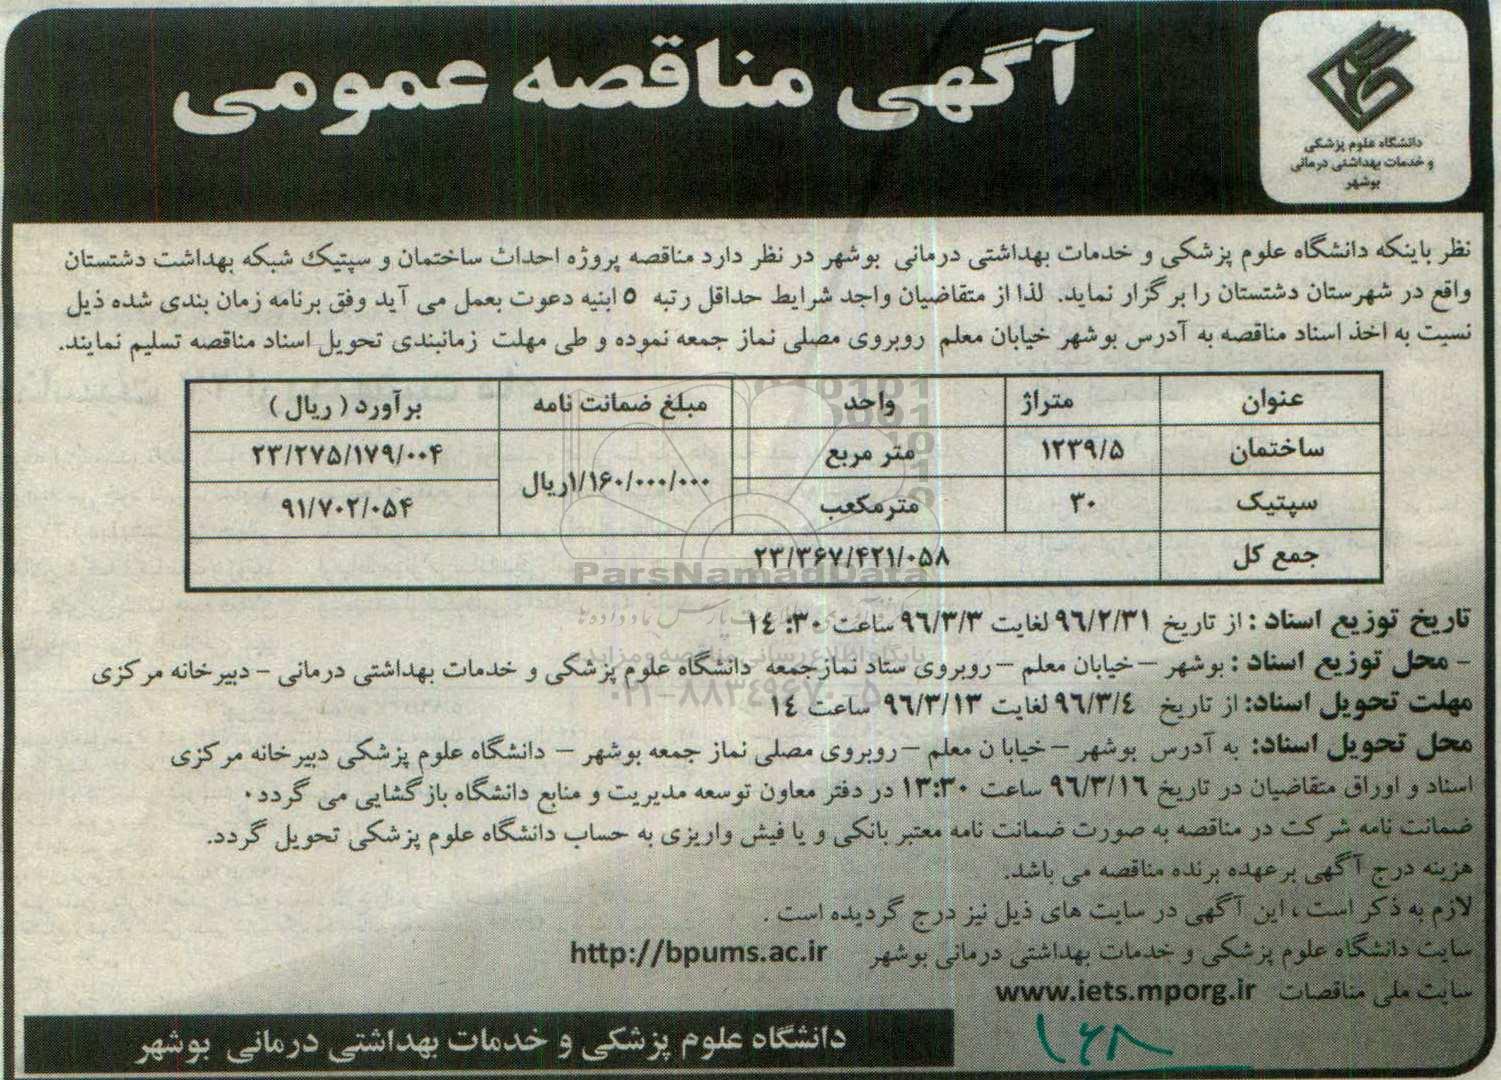 آگهی مناقصه عمومی
دانشگاه علوم پزشکی
و خدمات بهداشتی درمانی
بوشهر
نظر باینکه دانشگاه علوم پزشکی و خدمات بهداشتی درمانی بوشهر در نظر دارد مناقصه پروژه احداث ساختمان و سپتیک شبکه بهداشت دشتستان
واقع در شهرستان دشتستان را برگزار نماید. لذا از متقاضیان واجد شرایط حداقل رتبه ۵ ابنیه دعوت بعمل می آید وفق برنامه زمان بندی شده ذیل
نسبت به اخذ اسناد مناقصه به آدرس بوشهر خیابان معلم روبروی مصلی نماز جمعه نموده و طی مهلت زمانبندی تحویل اسناد مناقصه تسلیم نمایند.
عنوان متراژ واحد مبلغ ضمانت نامه برآورد ( ریال )
ساختمان ۱۲۳۹/۵ متر مربع ۱/۱۶۰/۰۰۰/۰۰۰ریال ۲۳/۲۷۵/۱۷۹/۰۰۴
سپتیک ۳۰ مترمکعب ۹۱/۷۰۲/۰۵۴
جمع کل ۲۳/۳۶۷/۴۲۱/۰۵۸
ParsNamadData
تاریخ توزیع اسناد : از تاریخ ۹۶/۲/۳۱ لغایت ۹۶/۳/۳ ساعت ۱۴:۳۰
- محل توزیع اسناد : بوشهر – خیابان معلم – روبروی ستاد نمازجمعه دانشگاه علوم پزشکی و خدمات بهداشتی درمانی - دبیرخانه مرکزی
۰۲۱-۸۸۳۴۹۶۷۰-۵
مهلت تحویل اسناد: از تاریخ ۹۶/۳/۴ لغایت ۹۶/۳/۱۳ ساعت ۱۴
محل تحویل اسناد: به آدرس بوشهر – خیابا ن معلم – روبروی مصلی نماز جمعه بوشهر – دانشگاه علوم پزشکی دبیرخانه مرکزی
اسناد و اوراق متقاضیان در تاریخ ۹۶/۳/۱۶ ساعت ۱۳:۳۰ در دفتر معاون توسعه مدیریت و منابع دانشگاه بازگشایی می گردد.
ضمانت نامه شرکت در مناقصه به صورت ضمانت نامه معتبر بانکی و یا فیش واریزی به حساب دانشگاه علوم پزشکی تحویل گردد.
هزینه درج آگهی برعهده برنده مناقصه می باشد.
لازم به ذکر است ، این آگهی در سایت های ذیل نیز درج گردیده است .
سایت دانشگاه علوم پزشکی و خدمات بهداشتی درمانی بوشهر http://bpums.ac.ir
سایت ملی مناقصات www.iets.mporg.ir
دانشگاه علوم پزشکی و خدمات بهداشتی درمانی بوشهر